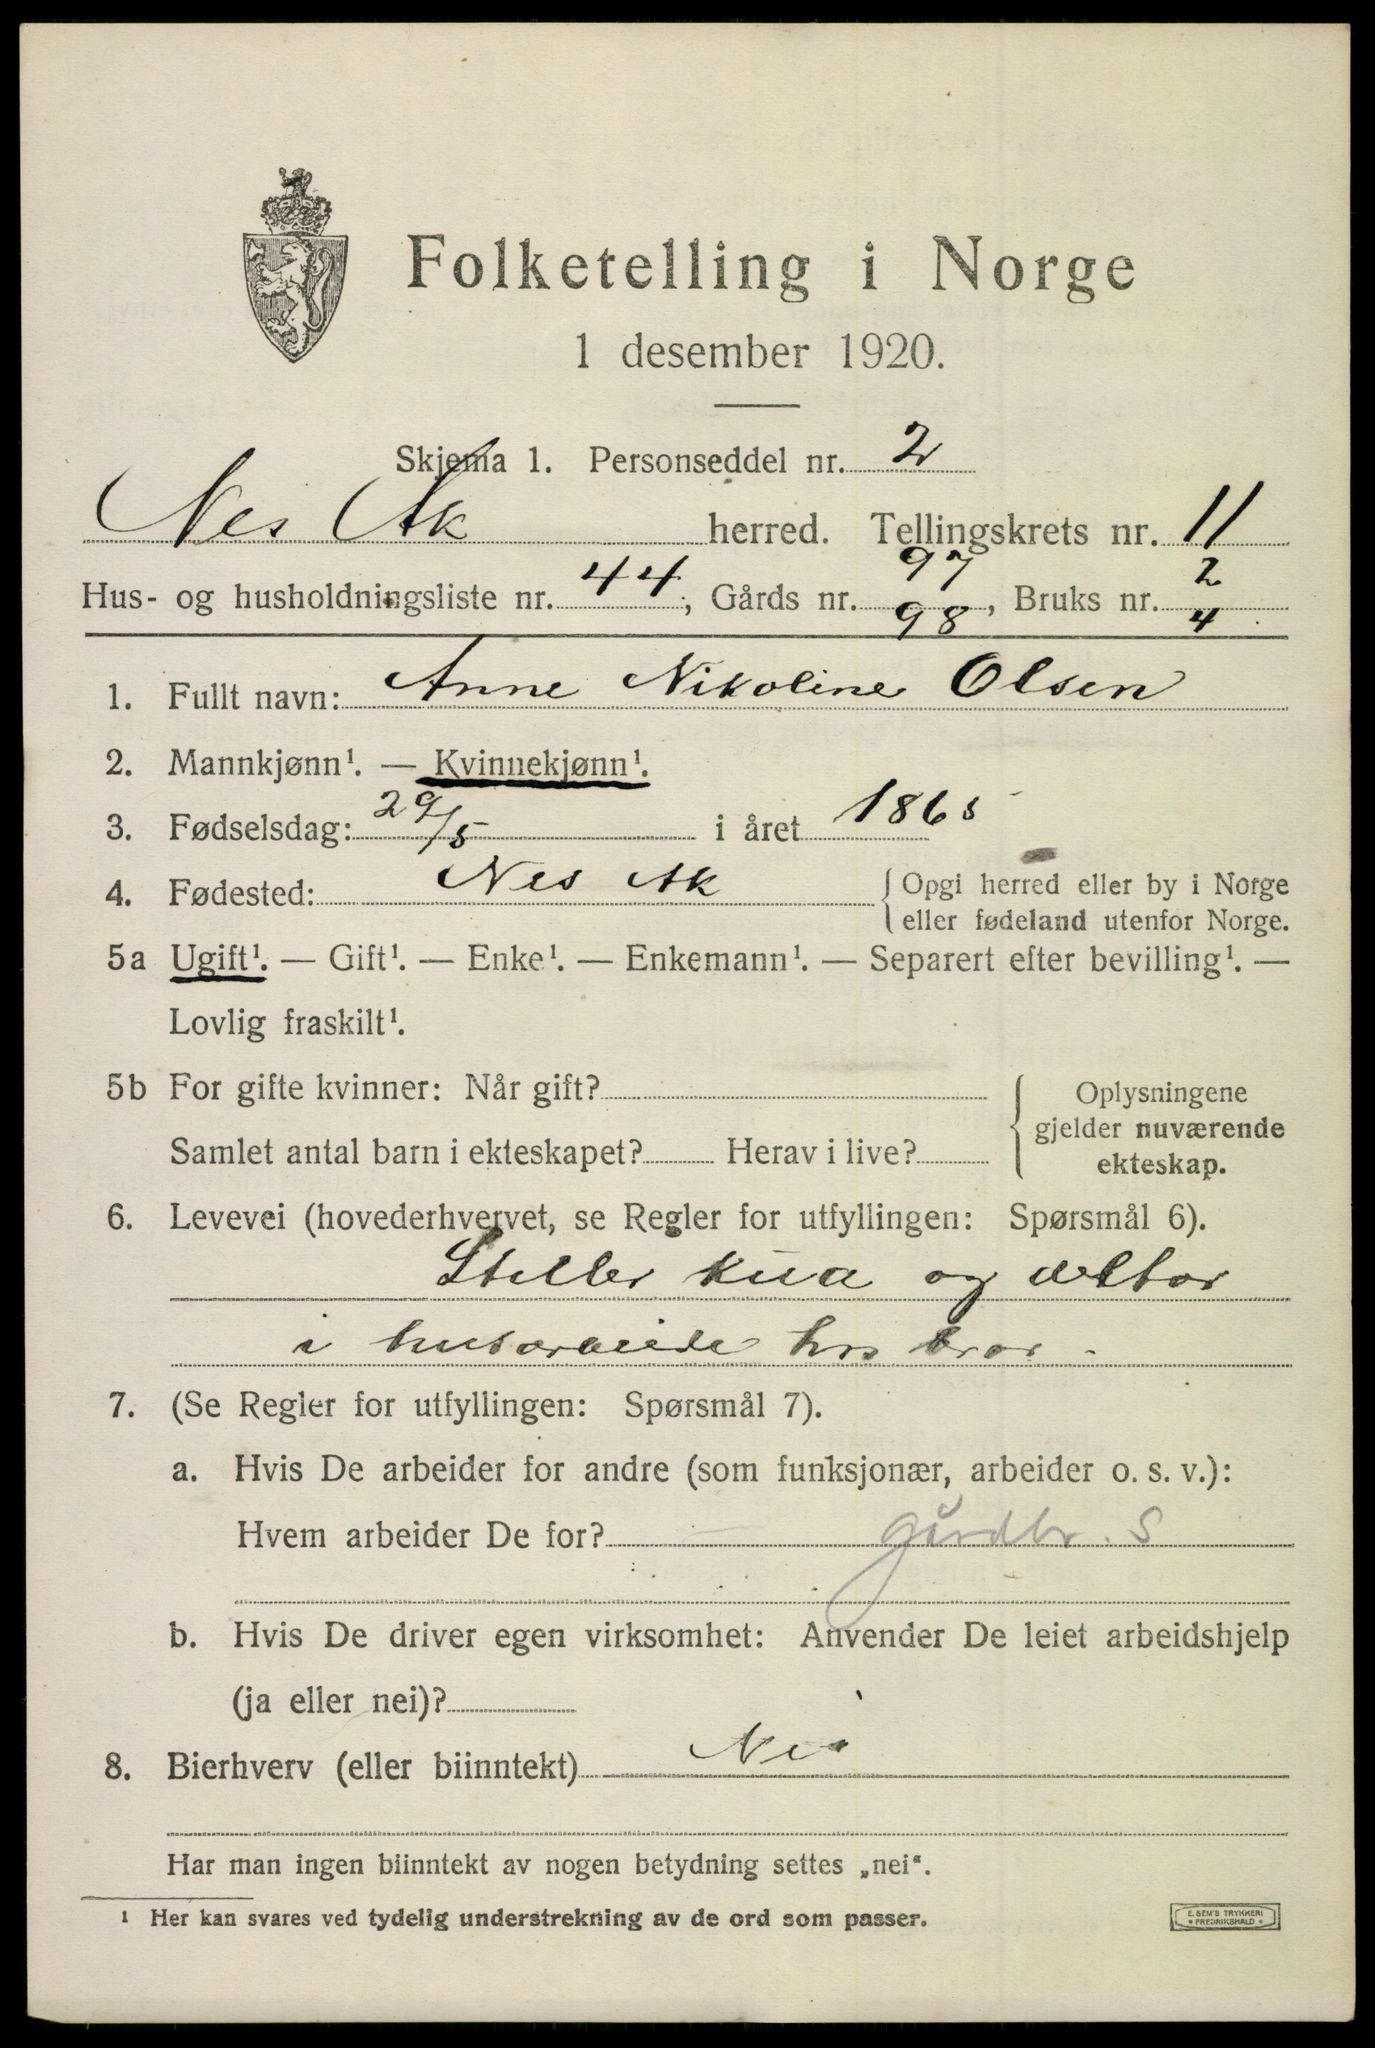 Folketelling i Norge
1 desember 1920.
Skjema 1. Personseddel nr. 2
Nes Ak herred. Tellingskrets nr. 11
Hus- og husholdningsliste nr. 44, Gårds nr. 97 98, Bruks nr. 2 4
1. Fullt navn: Anne Nikoline Olsen
2. Mannkjønn¹. — Kvinnekjønn¹.
3. Fødselsdag: 29/5 i året 1865
4. Fødested: Nes Ak { Opgi herred eller by i Norge
eller fødeland utenfor Norge.
5a Ugift¹. — Gift¹. — Enke¹. — Enkemann¹. — Separert efter bevilling¹. —
Lovlig fraskilt¹.
5b For gifte kvinner: Når gift?
Samlet antal barn i ekteskapet? Herav i live?
Oplysningene
gjelder nuværende
ekteskap.
6. Levevei (hovederhvervet, se Regler for utfyllingen: Spørsmål 6).
Steller kua og deltar
i husarbeide hos bror.
7. (Se Regler for utfyllingen: Spørsmål 7).
a. Hvis De arbeider for andre (som funksjonær, arbeider o. s. v.):
Hvem arbeider De for? gårdbr. S
b. Hvis De driver egen virksomhet: Anvender De leiet arbeidshjelp
(ja eller nei)?
8. Bierhverv (eller biinntekt) Nei
Har man ingen biinntekt av nogen betydning settes „nei“.
¹ Her kan svares ved tydelig understrekning av de ord som passer.
E. SEM'S TRYKKERI
* FREDRIKSHALD *